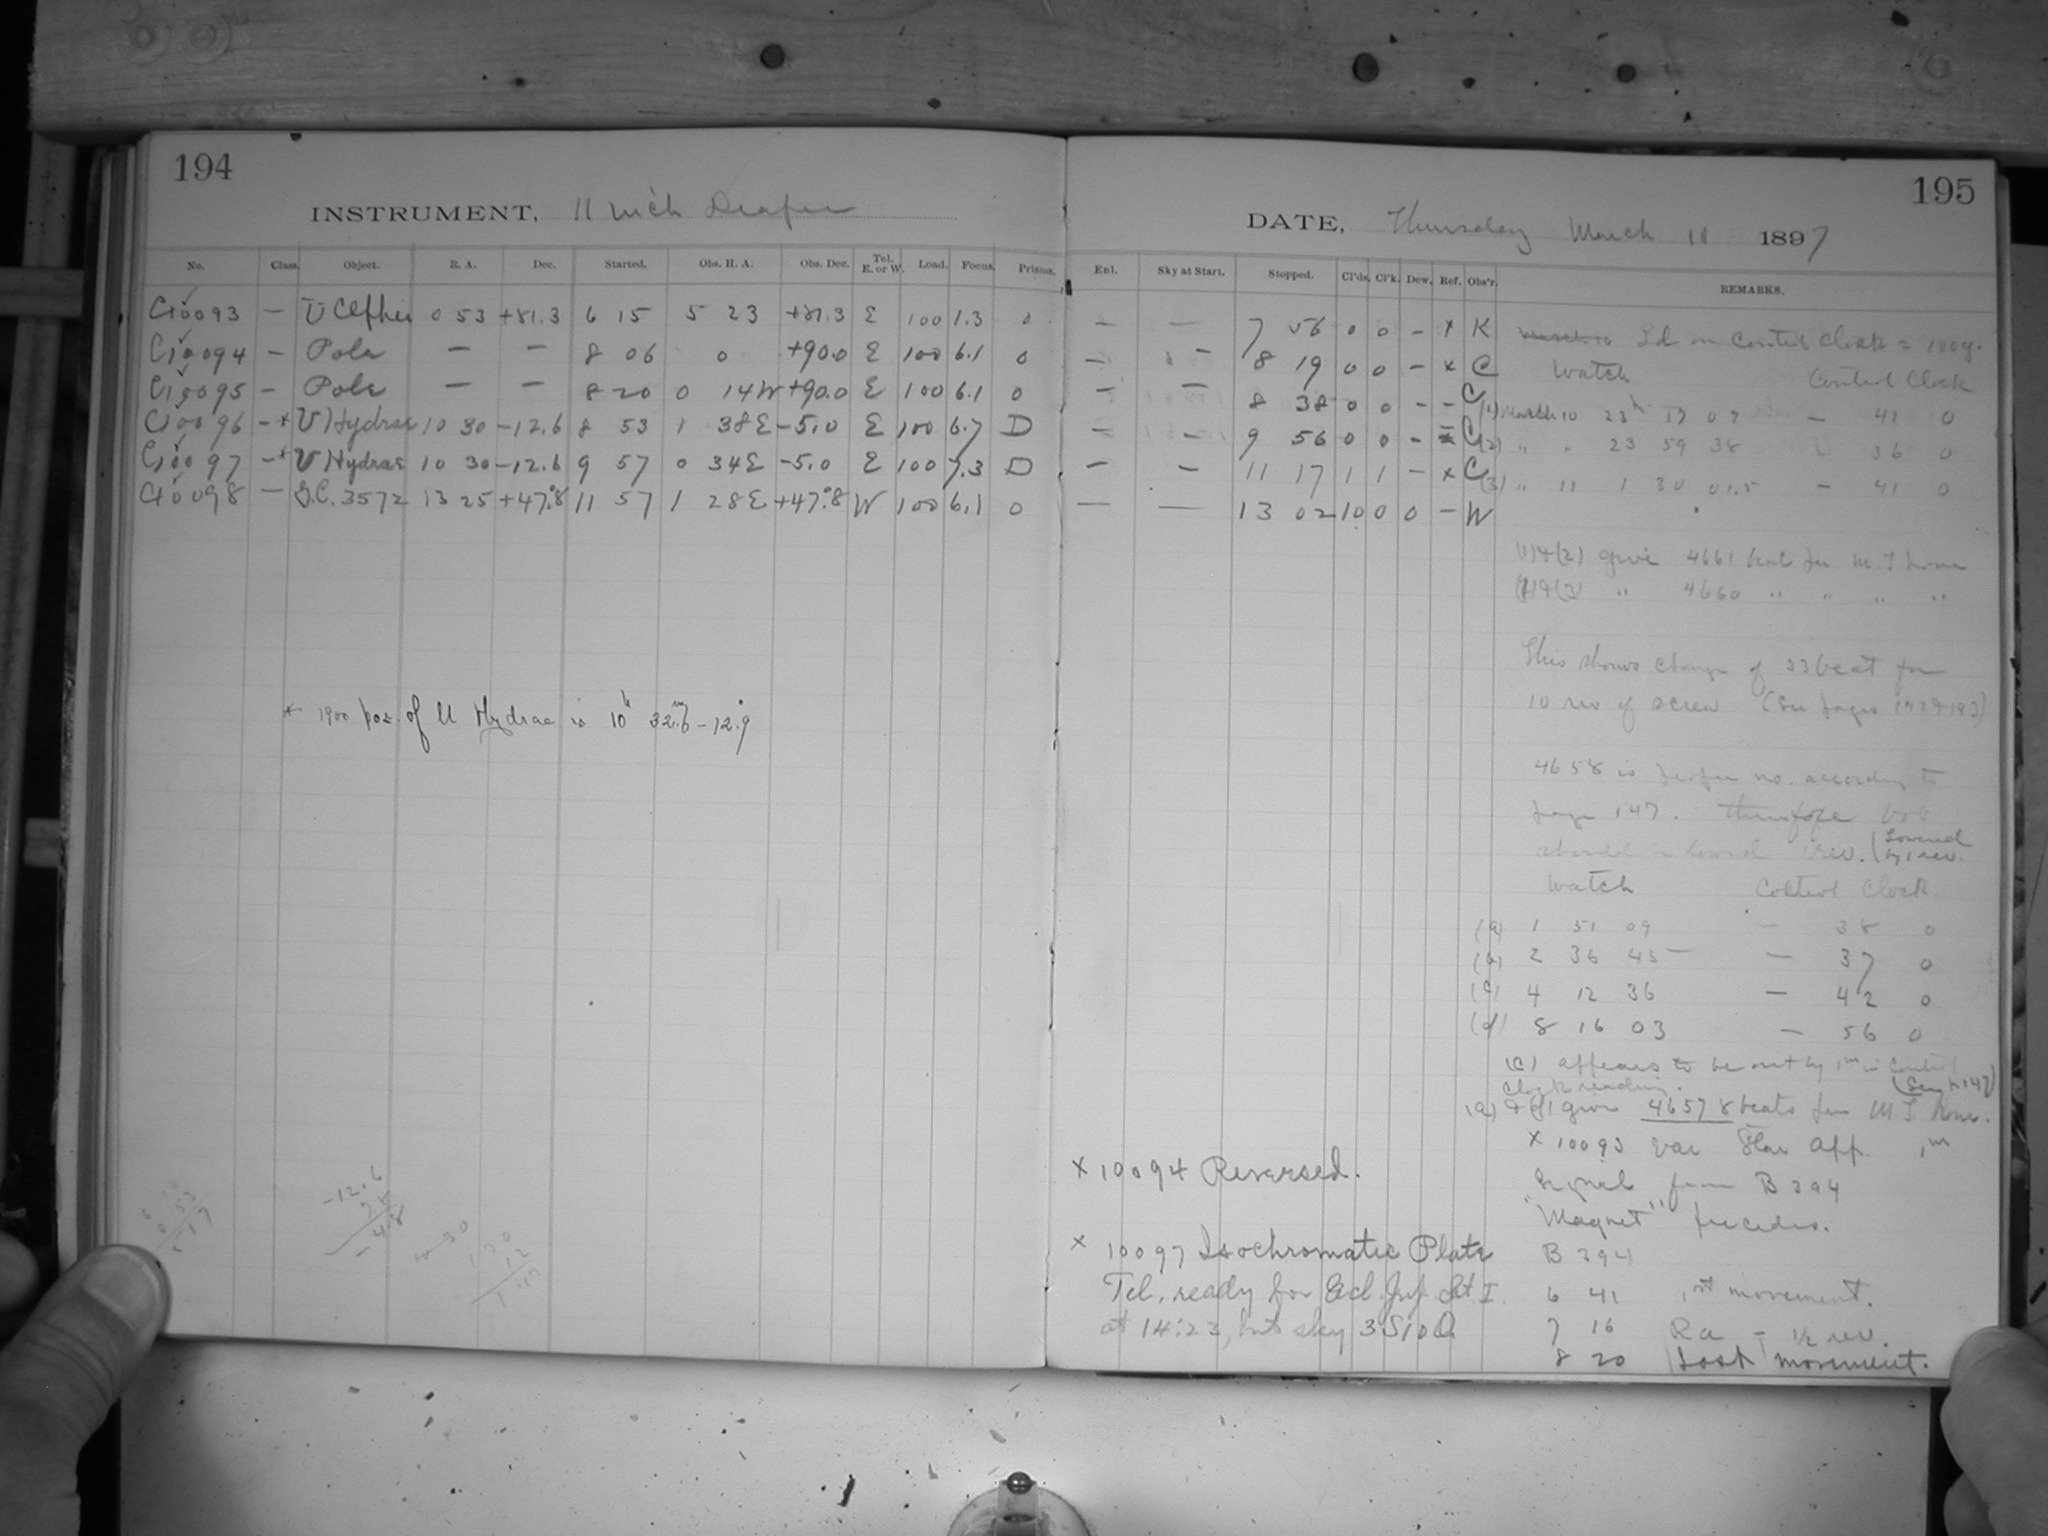 194
INSTRUMENT, 11 inch Draper
No. Class. Object. R. A. Dec. Started. Obs. H. A. Obs. Dec. Tel. E. or W. Load. Focus. Prisms.
C10093 — U Cephei 0 53 +81.3 6 15 5 23 +81.3 E 100 1.3 0
C10094 — Pole — — 8 06 0 +90.0 E 100 6.1 0
C10095 — Pole — — 8 20 0 14W +90.0 E 100 6.1 0
C10096 — * U Hydrae 10 30 -12.6 8 53 1 38E -5.0 E 100 6.7 D
C10097 — * U Hydrae 10 30 -12.6 9 57 0 34E -5.0 E 100 7.3 D
C10098 — G.C. 3572 13 25 +47.°8 11 57 1 28E +47.°8 W 100 6.1 0
* 1900 pos. of U Hydrae is 10h 32.m6 -12.°9
-12.6
195
DATE, Thursday March 11 1897
Enl. Sky at Start. Stopped. Cl'ds. Cl'k. Dew. Ref. Obs'r. REMARKS.
— — 7 56 0 0 — x K
— — 8 19 0 0 — x C
— — 8 38 0 0 — — C
— — 9 56 0 0 — C
— — 11 17 1 1 — x C
— — 13 02 10 0 0 — W
Ld on Control Clock = 100g.
Watch Control Clock
(1) March 10 23h 19 07 — 41 0
(2) " " 23 59 38 36 0
(3) " 11 1 30 01.5 — 41 0
(1)+(2) give 4661 beats for M. T. hour
4660 " " " "
This shows change of 33 beat for
10 rev of screw (See pages
4658 is proper no. according to
page 147. Therefore
should be lowered 1 rev. (Lowered
by 1 rev.
Watch Control Clock.
(a) 1 51 09 — 38 0
(b) 2 36 45 — 37 0
(c) 4 12 36 — 42 0
(d) 8 16 03 — 56 0
(c) appears to be out by 1m in Control
Clock reading. (See p. 147)
(a) + (d) give 4657.8 beats for M T hour.
x 10093 Var Star App. 1m
Signals from B 394
"Magnet" precedes.
B 394
6 41 1st movement.
7 16 Ra — 1/2 rev.
8 20 Last movement.
x 10094 Reversed.
x 10097 Isochromatic Plate
Tel. ready for Ecl. Jup. Sat. I.
at 14:23, but sky 3S10